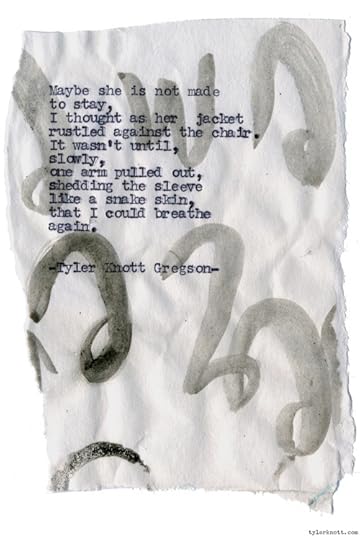 Maybe she is not made
to stay,
I thought as her jacket
rustled against the chair.
It wasn't until,
slowly,
one arm pulled out,
shedding the sleeve
like a snake skin,
that I could breathe
again.
-Tyler Knott Gregson-
tylerknott.com